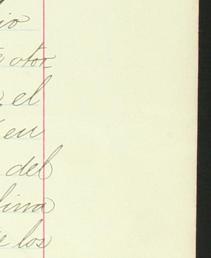 io
e otor
el
en
del
lina
e los